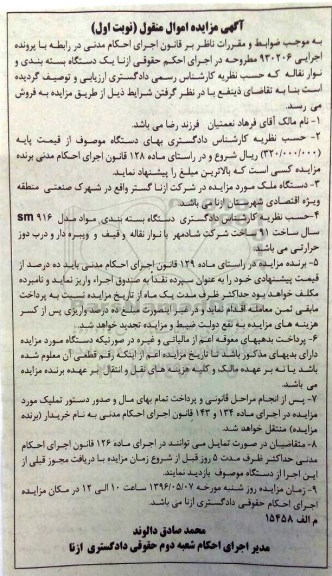 آگهی مزایده اموال منقول (نوبت اول)
به موجب ضوابط و مقررات ناظر بر قانون اجرای احکام مدنی در رابطه با پرونده
اجرایی ۹۳۰۲۰۶ مطروحه در اجرای احکم حقوقی ازنا یک دستگاه بسته بندی و
نوار نقاله که حسب نظریه کارشناس رسمی دادگستری ارزیابی و توصیف گردیده
است بنا به تقاضای ذینفع با در نظر گرفتن شرایط ذیل از طریق مزایده به فروش
می رسد.
۱- نام مالک آقای فرهاد نعمتیان فرزند رضا می باشد.
۲- حسب نظریه کارشناس دادگستری بهای دستگاه موصوف از قیمت پایه
(۳۲۰/۰۰۰/۰۰۰) ریال شروع و در راستای ماده ۱۲۸ قانون اجرای احکام مدنی برنده
مزایده کسی است که بالاترین مبلغ را پیشنهاد نماید.
۳- دستگاه ملک مورد مزایده در شرکت ازنا گستر واقع در شهرک صنعتی منطقه
ویژه اقتصادی شهرستان ازنا می باشد.
۴-حسب نظریه کارشناس دادگستری دستگاه بسته بندی مواد مدل sm ۹۱۶
سال ساخت ۹۱ ساخت شرکت شادمهر با نوار نقاله و قیف و ویبره دار و درب دوز
حرارتی می باشد.
۵- برنده مزایده در راستای ماده ۱۲۹ قانون اجرای احکام مدنی باید ده درصد از
قیمت پیشنهادی خود را به عنوان سپرده نقداً به صندوق اجراء واریز نماید و نامبرده
مکلف خواهد بود حداکثر ظرف مدت یک ماه از تاریخ مزایده نسبت به پرداخت
مابقی ثمن معامله اقدام نماید و در غیر اینصورت مبلغ ده درصد واریزی پس از کسر
هزینه های مزایده به نفع دولت ضبط و مزایده تجدید خواهد شد.
۶- پرداخت بدهیهای معوقه اعم از مالیاتی و غیره در صورتیکه دستگاه مورد مزایده
دارای بدیهای مذکور باشد تا تاریخ مزایده اعم از اینکه رقم قطعی آن معلوم شده
باشد یا نه بر عهده مالک و کلیه هزینه های نقل و انتقال بر عهده برنده مزایده
می باشد.
۷- پس از انجام مراحل قانونی و پرداخت تمام بهای مال و صدور دستور تملیک مورد
مزایده در اجرای ماده ۱۳۴ و ۱۴۳ قانون اجرای احکام مدنی به نام خریدار (برنده
مزایده) منتقل خواهد شد.
۸- متقاضیان در صورت تمایل می توانند در اجرای ماده ۱۲۶ قانون اجرای احکام
مدنی حداکثر ظرف مدت ۵ روز قبل از شروع زمان مزایده با دریافت مجوز قبلی از
این اجرا از دستگاه موصوف بازدید نمایند.
۹- زمان مزایده روز شنبه مورخه ۱۳۹۶/۰۵/۰۷ ساعت ۱۰ الی ۱۲ در مکان مزایده
اجرای احکام حقوقی دادگستری ازنا می باشد.
م الف ۱۵۴۵۸
محمد صادق دالوند
مدیر اجرای احکام شعبه دوم حقوقی دادگستری ازنا